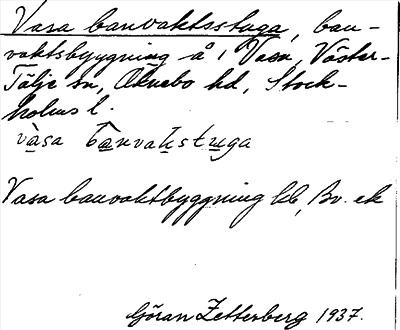 Vasa banvaktsstuga, ban-
vaktsbyggning å 1 Vasa, Väster-
Tälje sn, Öknebo hd, Stock-
holms l.
vàsa bânvakstuga
Vasa banvaktbyggning hb, Bv. ek
Göran Zetterberg 1937.